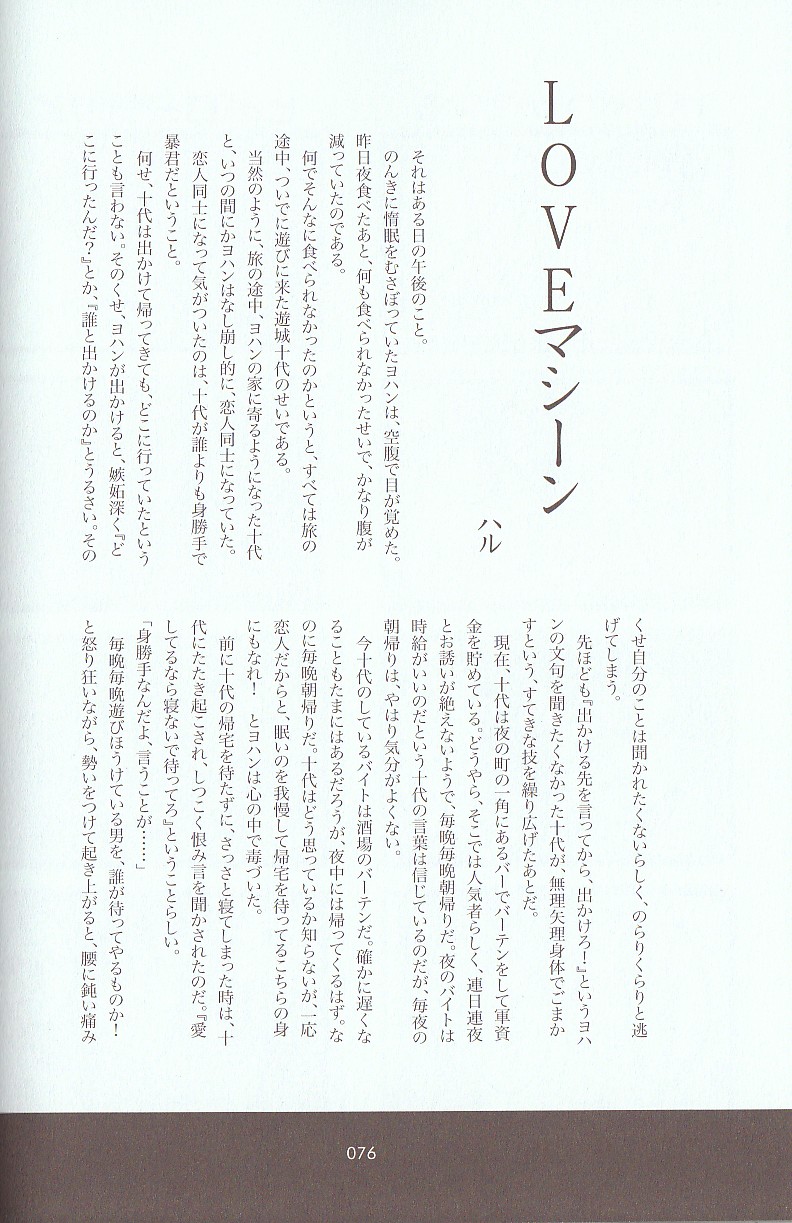 LOVEマシーン
ハル
それはある日の午後のこと。
のんきに惰眠をむさぼっていたヨハンは、空腹で目が覚めた。
昨日夜食べたあと、何も食べられなかったせいで、かなり腹が
減っていたのである。
何でそんなに食べられなかったのかというと、すべては旅の
途中、ついでに遊びに来た遊城十代のせいである。
当然のように、旅の途中、ヨハンの家に寄るようになった十代
と、いつの間にかヨハンはなし崩し的に、恋人同士になっていた。
恋人同士になって気がついたのは、十代が誰よりも身勝手で
暴君だということ。
何せ、十代は出かけて帰ってきても、どこに行っていたという
ことも言わない。そのくせ、ヨハンが出かけると、嫉妬深く『ど
こに行ったんだ？』とか、『誰と出かけるのか』とうるさい。その
くせ自分のことは聞かれたくないらしく、のらりくらりと逃
げてしまう。
先ほども『出かける先を言ってから、出かけろ！』というヨハ
ンの文句を聞きたくなかった十代が、無理矢理身体でごまか
すという、すてきな技を繰り広げたあとだ。
現在、十代は夜の町の一角にあるバーでバーテンをして軍資
金を貯めている。どうやら、そこでは人気者らしく、連日連夜
とお誘いが絶えないようで、毎晩毎晩朝帰りだ。夜のバイトは
時給がいいのだという十代の言葉は信じているのだが、毎夜の
朝帰りは、やはり気分がよくない。
今十代のしているバイトは酒場のバーテンだ。確かに遅くな
ることもたまにはあるだろうが、夜中には帰ってくるはず。な
のに毎晩朝帰りだ。十代はどう思っているか知らないが、一応
恋人だからと、眠いのを我慢して帰宅を待ってるこちらの身
にもなれ！　とヨハンは心の中で毒づいた。
前に十代の帰宅を待たずに、さっさと寝てしまった時は、十
代にたたき起こされ、しつこく恨み言を聞かされたのだ。『愛
してるなら寝ないで待ってろ』ということらしい。
「身勝手なんだよ、言うことが……」
毎晩毎晩遊びほうけている男を、誰が待ってやるものか！
と怒り狂いながら、勢いをつけて起き上がると、腰に鈍い痛み
076